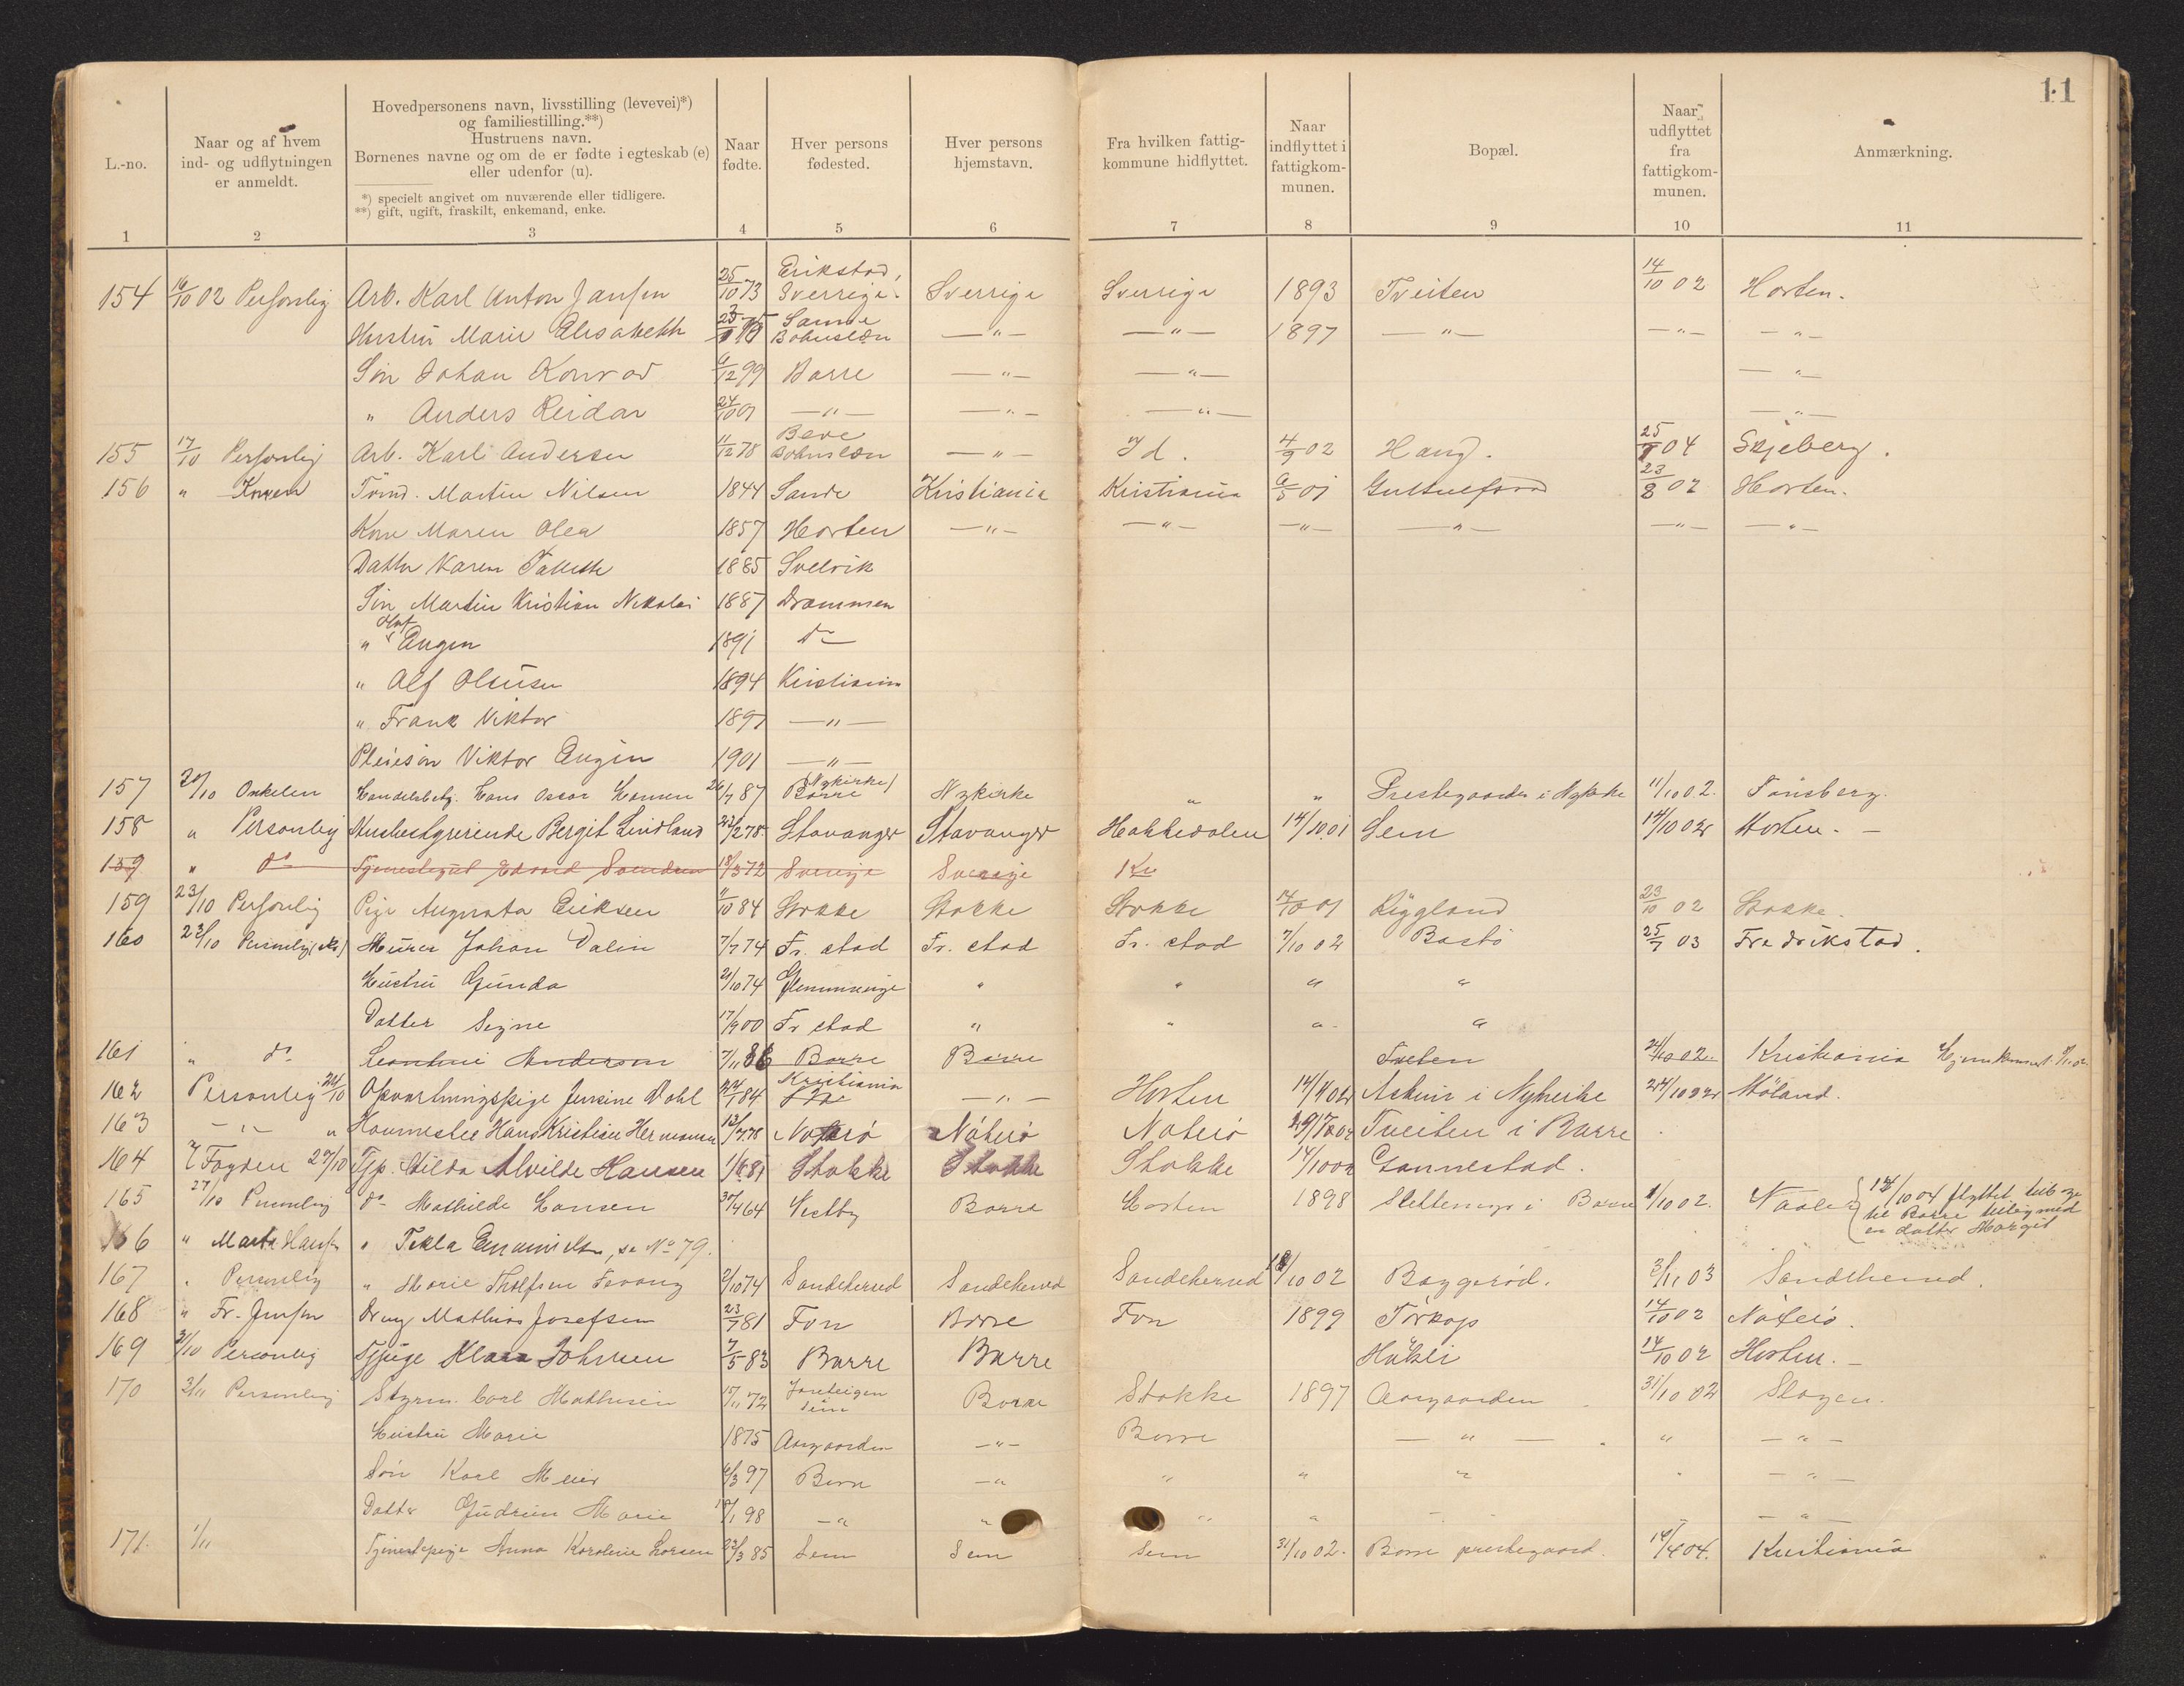 11
L.-no.
Naar og af hvem ind- og udflytningen er anmeldt.
Hovedpersonens navn, livsstilling (levevei)*) og familiestilling.**)
Hustruens navn.
Børnenes navne og om de er fødte i egteskab (e) eller udenfor (u).
*) specielt angivet om nuværende eller tidligere.
**) gift, ugift, fraskilt, enkemand, enke.
Naar fødte.
Hver persons fødested.
Hver persons hjemstavn.
Fra hvilken fattig-kommune hidflyttet.
Naar indflyttet i fattigkom-munen.
Bopæl.
Naar udflyttet fra fattigkom-munen.
Anmærkning.
1 2 3 4 5 6 7 8 9 10 11
154 16/10 02 Personlig Arb. Karl Anton Jansen 25/10 73 Erikstad, Sverrige Sverrige Sverrige 1893 Tveiten 14/10 02 Horten.
Hustru Marie Elisabeth Bohuslæn —"— —"— 1897 —"— —"— —"—
Søn Johan Konrad 6/12 99 Borre —"— —"— —"—
" Anders Reidar 24/10 01 —"— —"— —"— —"—
155 17/10 Personlig Arb. Karl Andersen 11/12 78 Bohuslæn —"— Id. 4/9 02 Haug. 04 Skjeberg.
156 " Konen Tømd. Martin Nilsen 1844 Sande Kristiania Kristiania 01 23/8 02 Horten.
Kone Maren Olea 1857 Horten —"— —"— —"— —"— —"— —"—
Datter Karen 1885 Svelvik
Søn Martin Kristian Nikolai 1887 Drammen
" Olaf Eugen 1891 do
" Alf 1894 Kristiania
" Frank Viktor 1897 —"—
Pleiesøn Viktor Eugen 1901 —"—
157 20/10 Onkelen Handelsbetj. Hans Oscar Hansen 26/7 87 Borre (Nykirke) Nykirke " " Prestegaarden i Nykirke 11/10 02. Tønsberg.
158 " Personlig Husbestyrerinde Bergit Lindland 78 Stavanger Stavanger Hakkedalen 14/10 01 Sem 14/10 02 Horten. —
159 " do Tjenestegut Edvard Svendsen 18/3 72 Sverige Sverige
159 23/10 Personlig Pige Augusta Eriksen 11/10 84 Stokke Stokke Stokke 14/10 01 Rygland 23/10 02 Stokke.
160 23/10 Personlig Murer Johan Dalin 7/7 74 Fr. stad Fr. stad Fr. stad 7/10 02 Bastø 25/7 03 Fredrikstad.
Hustru Gunda 21/10 74 Glemminge " " " "
Datter Signe 17/9 00 Fr stad " " " "
161 " do Leontine Andersen 7/11 86 Borre Borre Tveten 24/10 02. Kristiania
162 Personlig 24/10 Opvartningspige Jensine Dahl 84 Kristiania —"— Horten 14/4 02 Askim i Nykirke 24/10 02 Høland.
163 —"— " Hans Kristian Hermansen 78 Nøterø Nøterø Nøterø Tveiten i Borre
164 Fogden 27/10 Tjp. Hilda Alvilde Hansen 81 Stokke Stokke Stokke 14/10 02 Gannestad.
165 27/10 Personlig do Mathilde Hansen 30/4 64 Vestby Borre Horten 1898 i Borre 1/10 02. Vaale 14/10 04 flyttet tilbage til Borre tilligemed en datter Margit
166 " Marta Hansen " Tekla Emanuelsen, se No 79.
167 " Personlig " Marie Tholfsen Tovang 2/10 74 Sandeherred Sandeherred Sandeherred 14/10 02 Baggerød. 3/11 03 Sandeherred.
168 " Fr. Jensen Dreng Mathias Josefsen 23/7 81 Fon Borre Fon 1899 Torkop 14/10 02 Nøterø.
169 31/10 Personlig Tjpige Klara Johnsen 7/5 83 Borre Borre 14/10 02 Horten. —
170 3/11 Personlig Styrm. Carl Mathisen 17/11 72 Sem Borre Stokke 1897 Aasgaarden 31/10 02 Slagen.
Hustru Marie 1875 Aasgaarden —"— Borre —"— " —"—
Søn Karl Meier 6/3 97 Borre —" " " " " —"—
Datter Gudrun Marie 98 —" " " " —"—
171. 1/11 Tjenestepige Anna Karoline Larsen 22/3 85 Sem Sem Sem 31/10 02. Borre prestegaard. 14/4 04. Kristiania